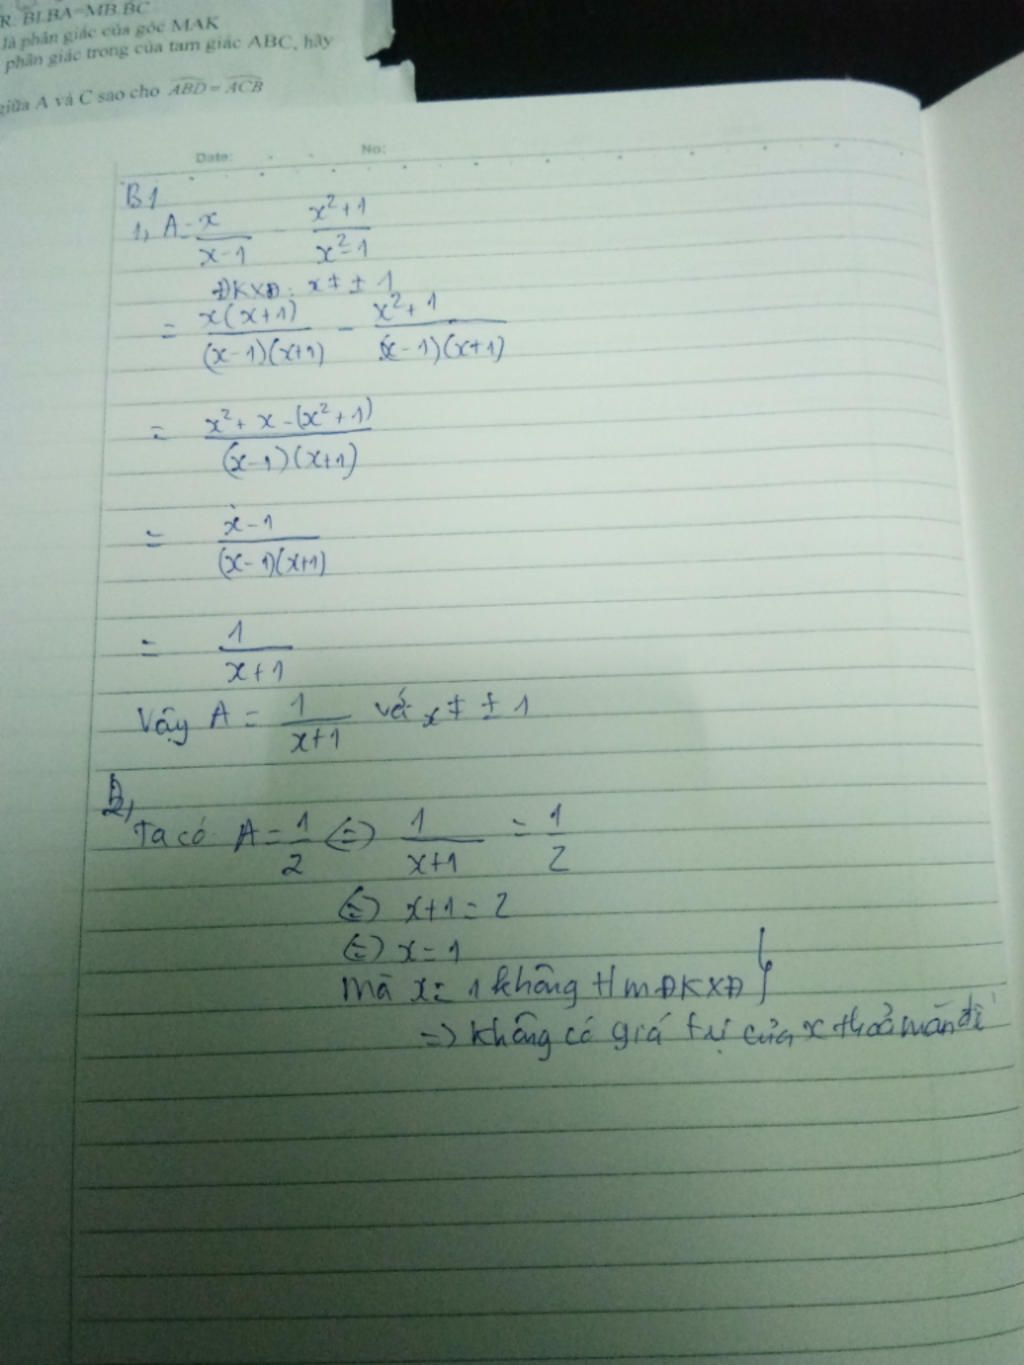 R: BI.BA=MB.BC
là phân giác của góc MAK
phân giác trong của tam giác ABC, hãy
giữa A và C sao cho ABD = ACB
Date: No:
B1
1, A = x/(x-1) - (x²+1)/(x²-1)
ĐKXĐ: x ≠ ± 1
= x(x+1)/((x-1)(x+1)) - (x²+1)/((x-1)(x+1))
= (x²+x-(x²+1))/((x-1)(x+1))
= (x-1)/((x-1)(x+1))
= 1/(x+1)
Vậy A = 1/(x+1) với x ≠ ± 1
2,
Ta có A = 1/2 (=) 1/(x+1) = 1/2
(=) x+1 = 2
(=) x = 1
mà x = 1 không t/m ĐKXĐ }
=> không có giá trị của x thoả mãn đề